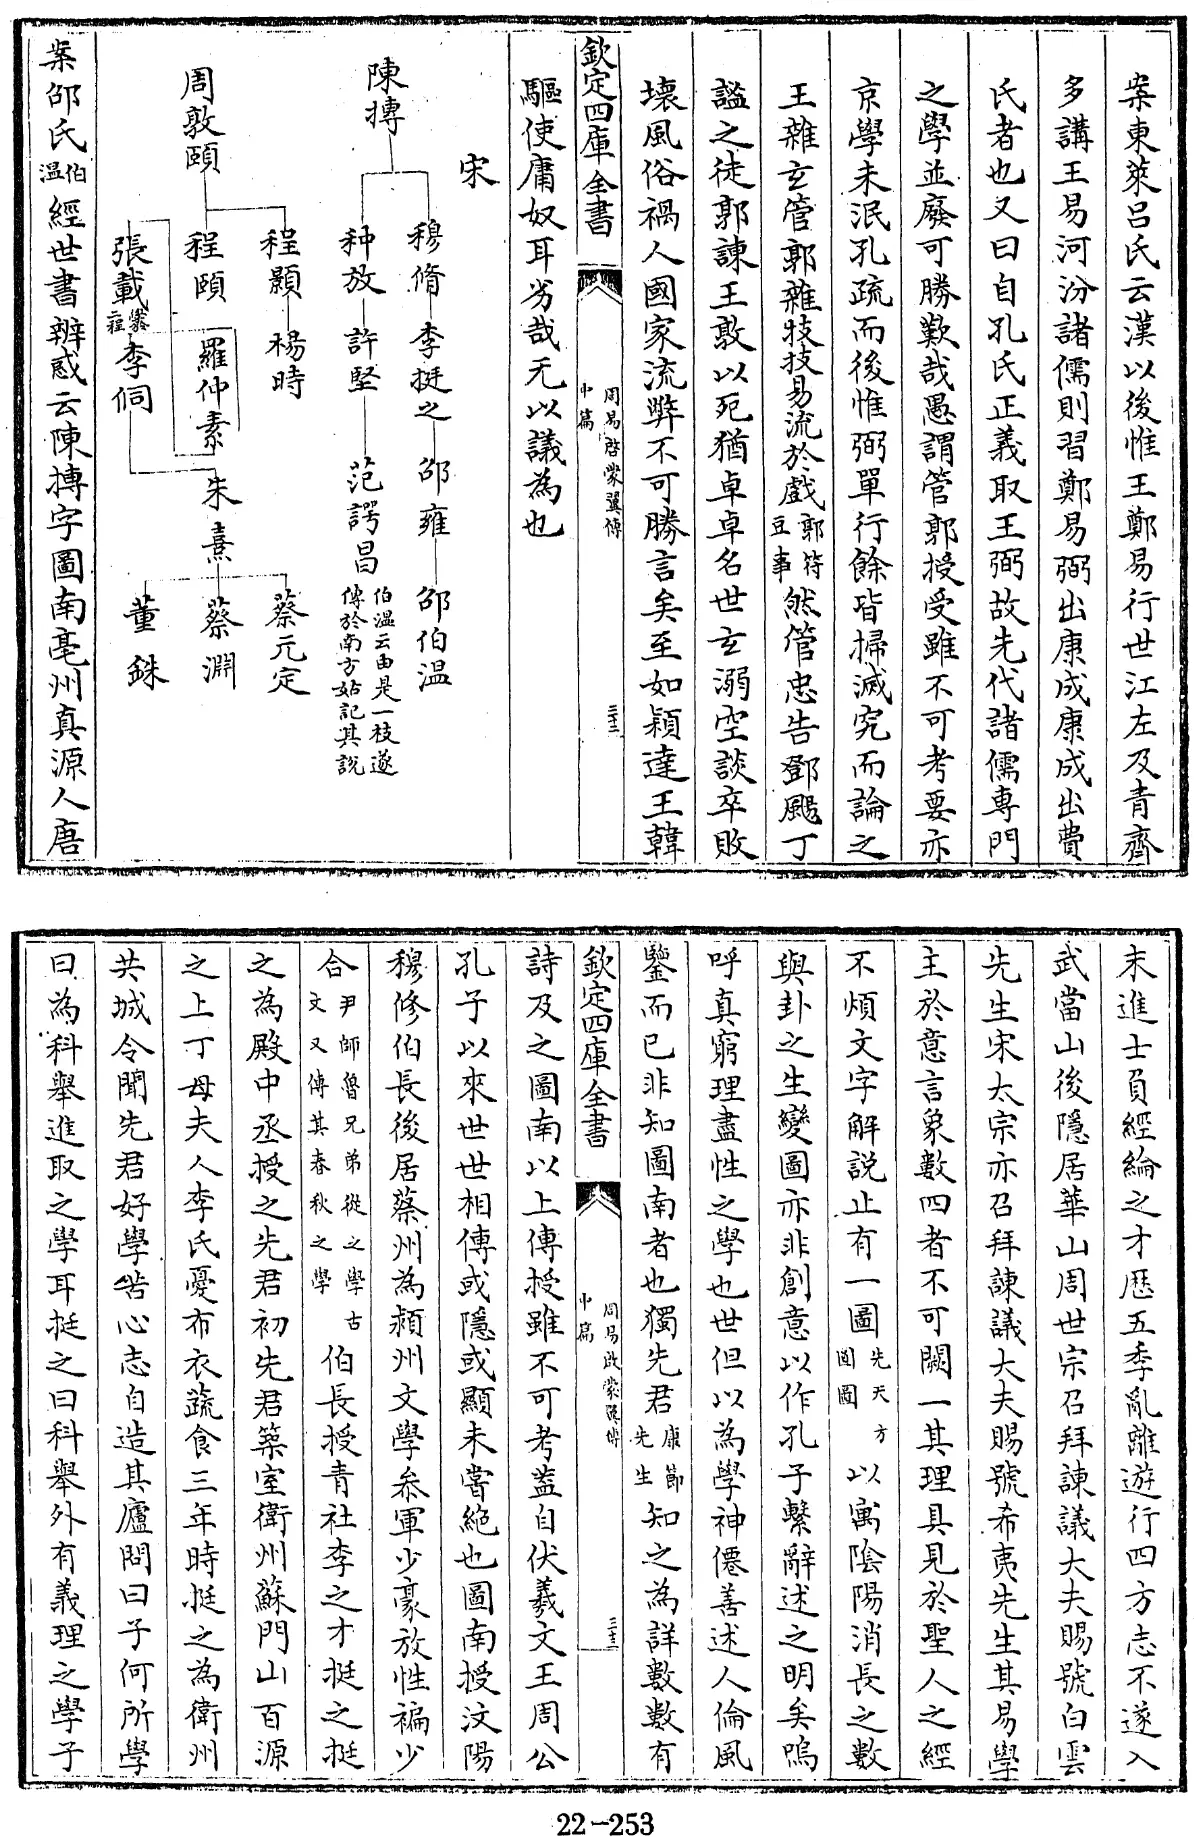 案東萊呂氏云漢以後惟王鄭易行世江左及青齊
多講王易河汾諸儒則習鄭易弼出康成康成出費
氏者也又曰自孔氏正義取王弼故先代諸儒專門
之學並廢可勝歎哉愚謂管郭授受雖不可考要亦
京學未泯孔疏而後惟弼單行餘皆掃滅究而論之
王雜玄管郭雜技技易流於戲郭符豆事然管忠告鄧颺丁
謐之徒郭諫王敦以死猶卓卓名世玄溺空談卒敗
壞風俗禍人國家流弊不可勝言矣至如穎達王韓
欽定四庫全書
周易啓蒙翼傳
中篇
三十二
驅使庸奴耳劣哉无以議為也
宋
陳摶
穆脩
李挺之
邵雍
邵伯温
种放
許堅
范諤昌
伯温云由是一枝遂
傳於南方姑記其說
周敦頤
程顥
楊時
程頤
羅仲素
朱熹
蔡元定
蔡淵
董銖
張載
李侗
案邵氏伯温經世書辨惑云陳摶字圖南亳州真源人唐
末進士負經綸之才歷五季亂離遊行四方志不遂入
武當山後隱居華山周世宗召拜諫議大夫賜號白雲
先生宋太宗亦召拜諫議大夫賜號希夷先生其易學
主於意言象數四者不可闕一其理具見於聖人之經
不煩文字解說止有一圖先天方圓圖以寓陰陽消長之數
與卦之生變圖亦非創意以作孔子繫辭述之明矣嗚
呼真窮理盡性之學也世但以為學神僊善述人倫風
鑒而已非知圖南者也獨先君康節先生知之為詳數數有
欽定四庫全書
周易啟蒙翼傳
中篇
三十三
詩及之圖南以上傳授雖不可考葢自伏羲文王周公
孔子以來世世相傳或隱或顯未嘗絶也圖南授汶陽
穆修伯長後居蔡州為潁州文學叅軍少豪放性褊少
合尹師魯兄弟從之學古文又傳其春秋之學伯長授青社李之才挺之挺
之為殿中丞授之先君初先君築室衛州蘇門山百源
之上丁母夫人李氏憂布衣蔬食三年時挺之為衛州
共城令聞先君好學苦心志自造其廬問曰子何所學
曰為科舉進取之學耳挺之曰科舉外有義理之學子
22-253